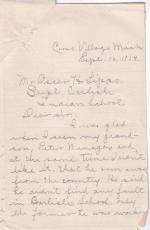 Cross Village Mich
Sept. 12, 1914.
Mr Oscar H Lipps
Supt. Carlisle
Indian School
Dear sir.
I was glad
when I seen my grand-
son, Peter and
at the same time I didnt
like it. that he run away
from the country. He said
he didnt find any fault
in Carlisle School. only
the farmer he was working